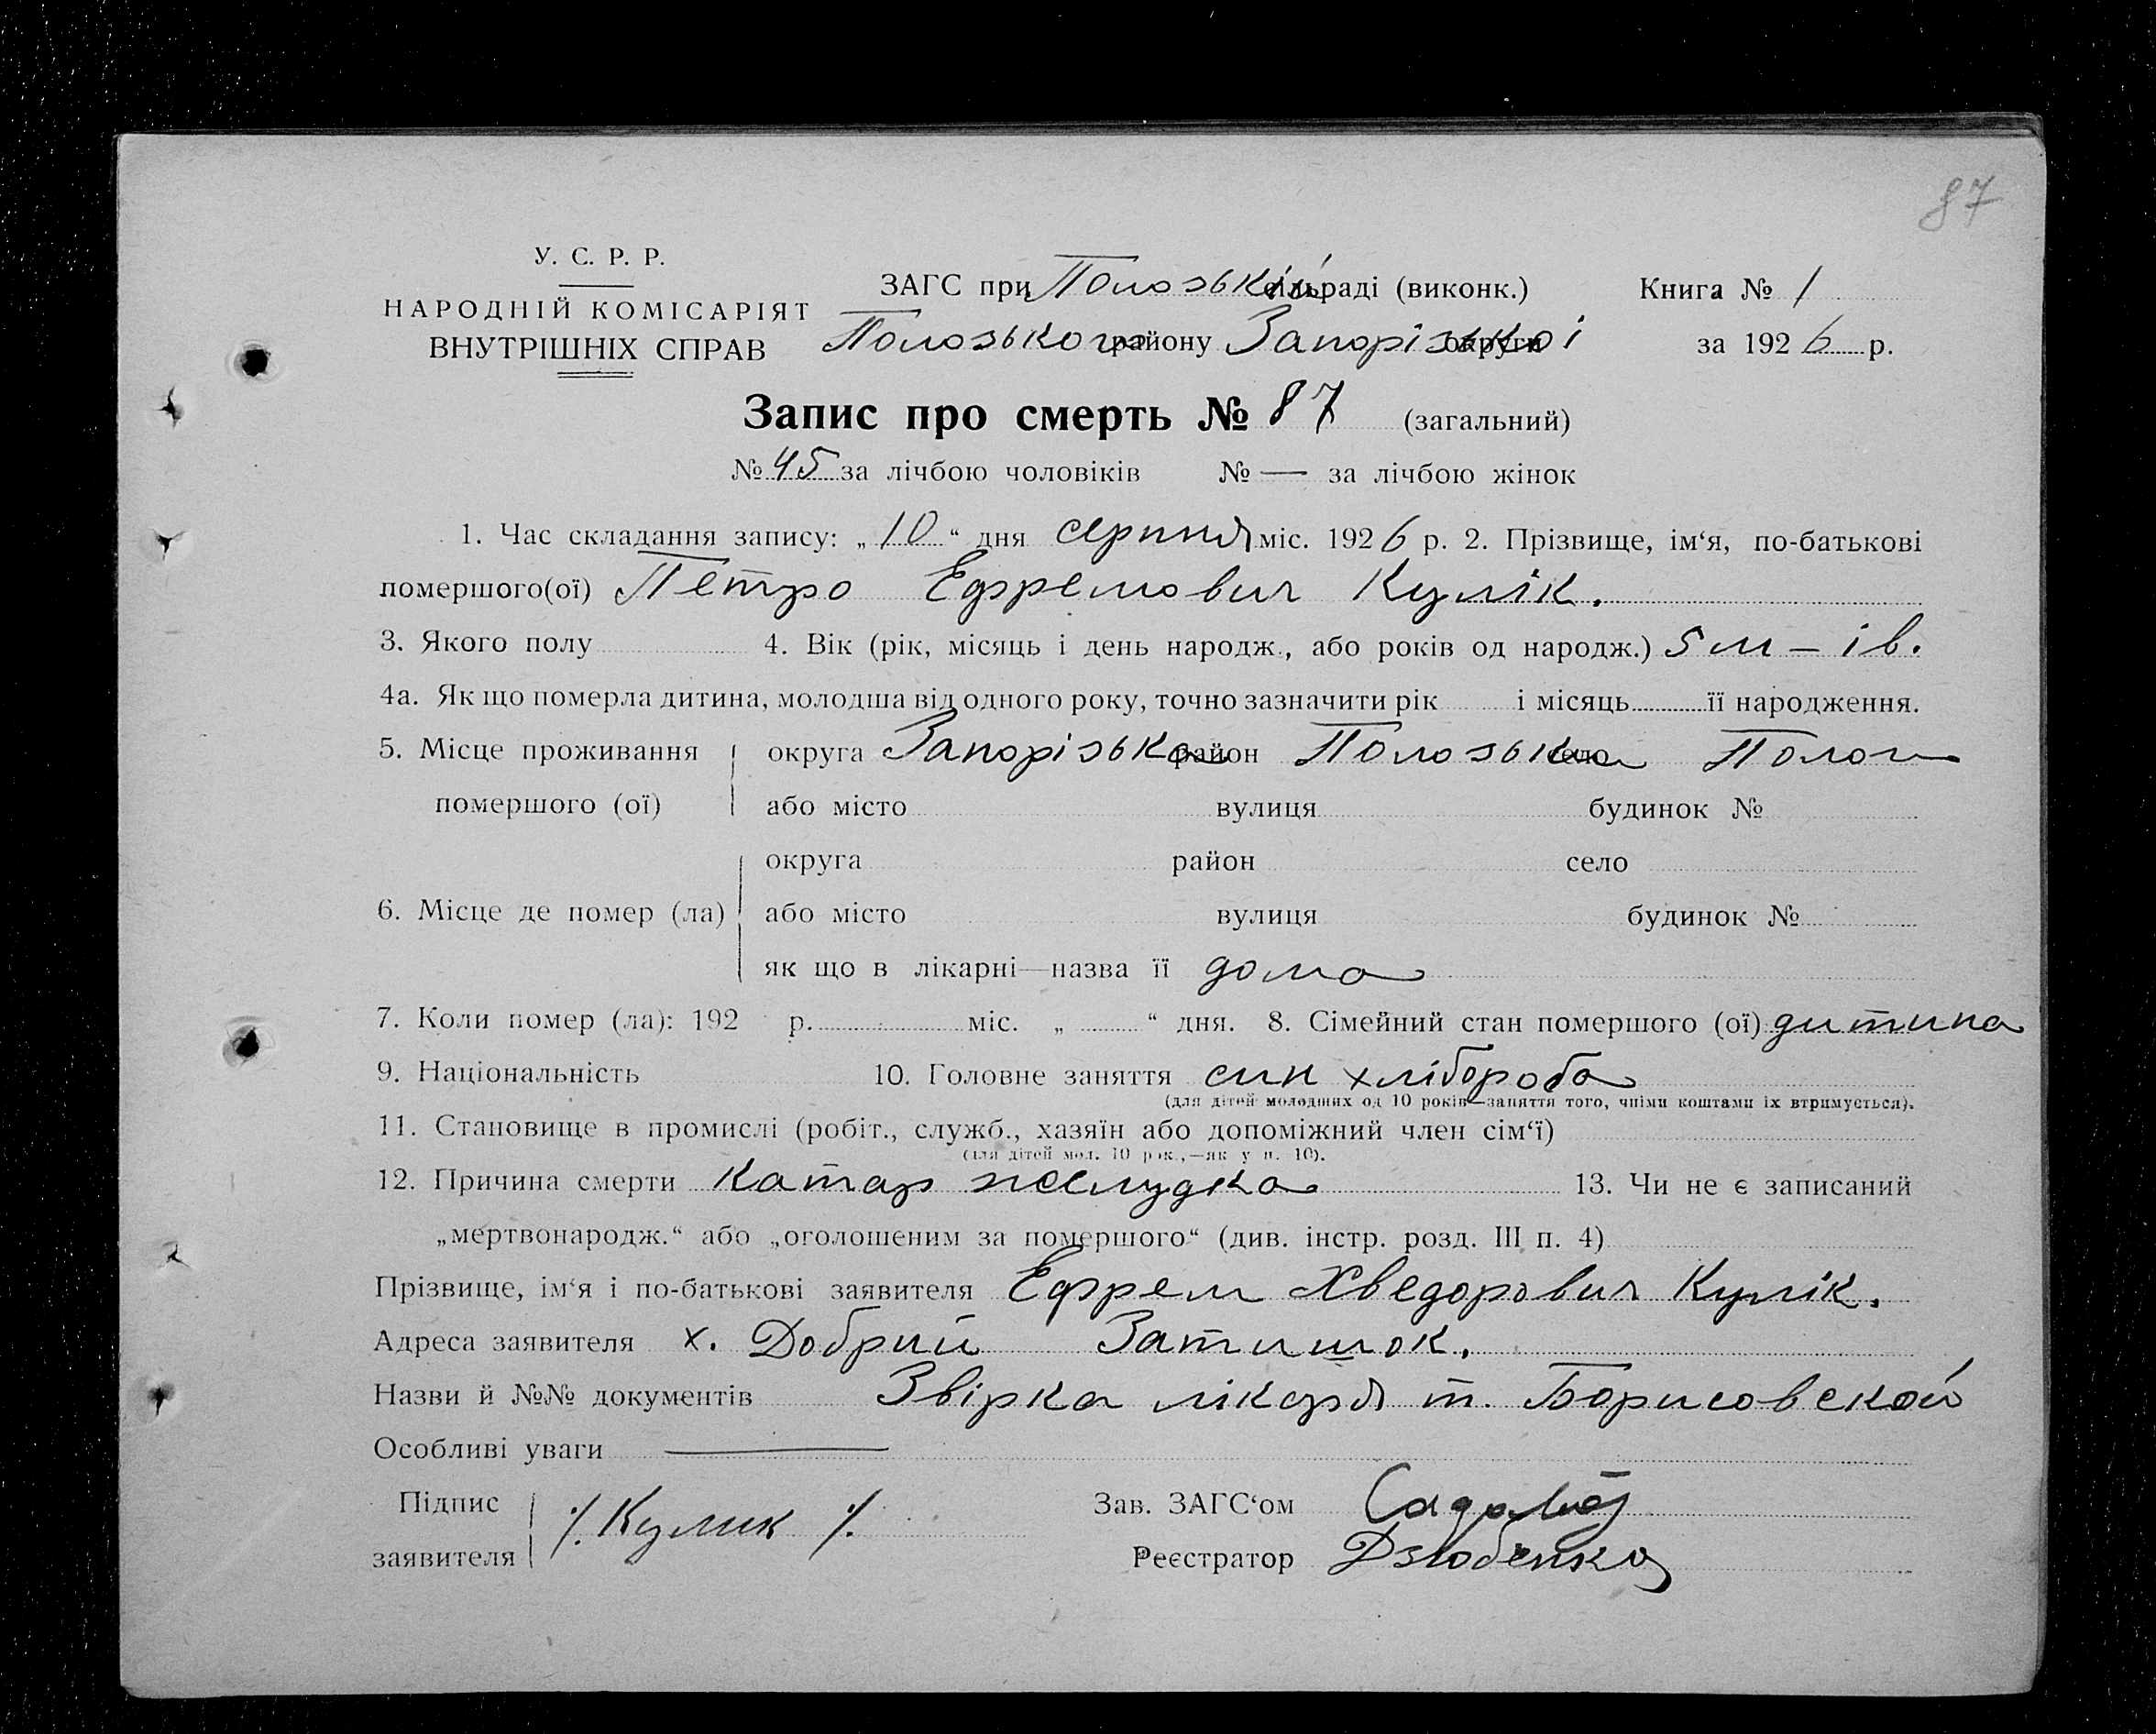 87
У. С. Р. Р.
НАРОДНІЙ КОМІСАРІЯТ
ВНУТРІШНІХ СПРАВ
ЗАГС при Полозькій сільраді (виконк.)
Полозького району Запорізькоі округи
Книга № 1
за 1926 р.
Запис про смерть № 87 (загальний)
№ 45 за лічбою чоловіків № — за лічбою жінок
1. Час складання запису: „10“ дня серпня міс. 1926 р. 2. Прізвище, ім‘я, по-батькові
помершого(ої) Петро Ефремович Кулік.
3. Якого полу 4. Вік (рік, місяць і день народж., або років од народж.) 5 м – ів.
4а. Як що померла дитина, молодша від одного року, точно зазначити рік і місяць її народження.
5. Місце проживання округа Запорізька район Полозька село Пологи
помершого (ої) або місто вулиця будинок №
округа район село
6. Місце де помер (ла) або місто вулиця будинок №
як що в лікарні—назва її дома
7. Коли помер (ла): 192 р. міс. „ “ дня. 8. Сімейний стан помершого (ої) дитина
9. Національність 10. Головне заняття син хлібороба
(для дітей молодших од 10 років—заняття того, чиїми коштами їх втримується).
11. Становище в промислі (робіт., служб., хазяїн або допоміжний член сім‘ї)
(для дітей мол. 10 рок.,—як у п. 10).
12. Причина смерти Катар желудка 13. Чи не є записаний
„мертвонародж.“ або „оголошеним за помершого“ (див. інстр. розд. III п. 4)
Прізвище, ім‘я і по-батькові заявителя Ефрем Хведорович Кулік.
Адреса заявителя х. Добрий Затишок.
Назви й №№ документів Звірка лікаря т. Борисовской
Особливі уваги —
Підпис
заявителя /. Кулик /.
Зав. ЗАГС‘ом
Реєстратор Дзюбенко